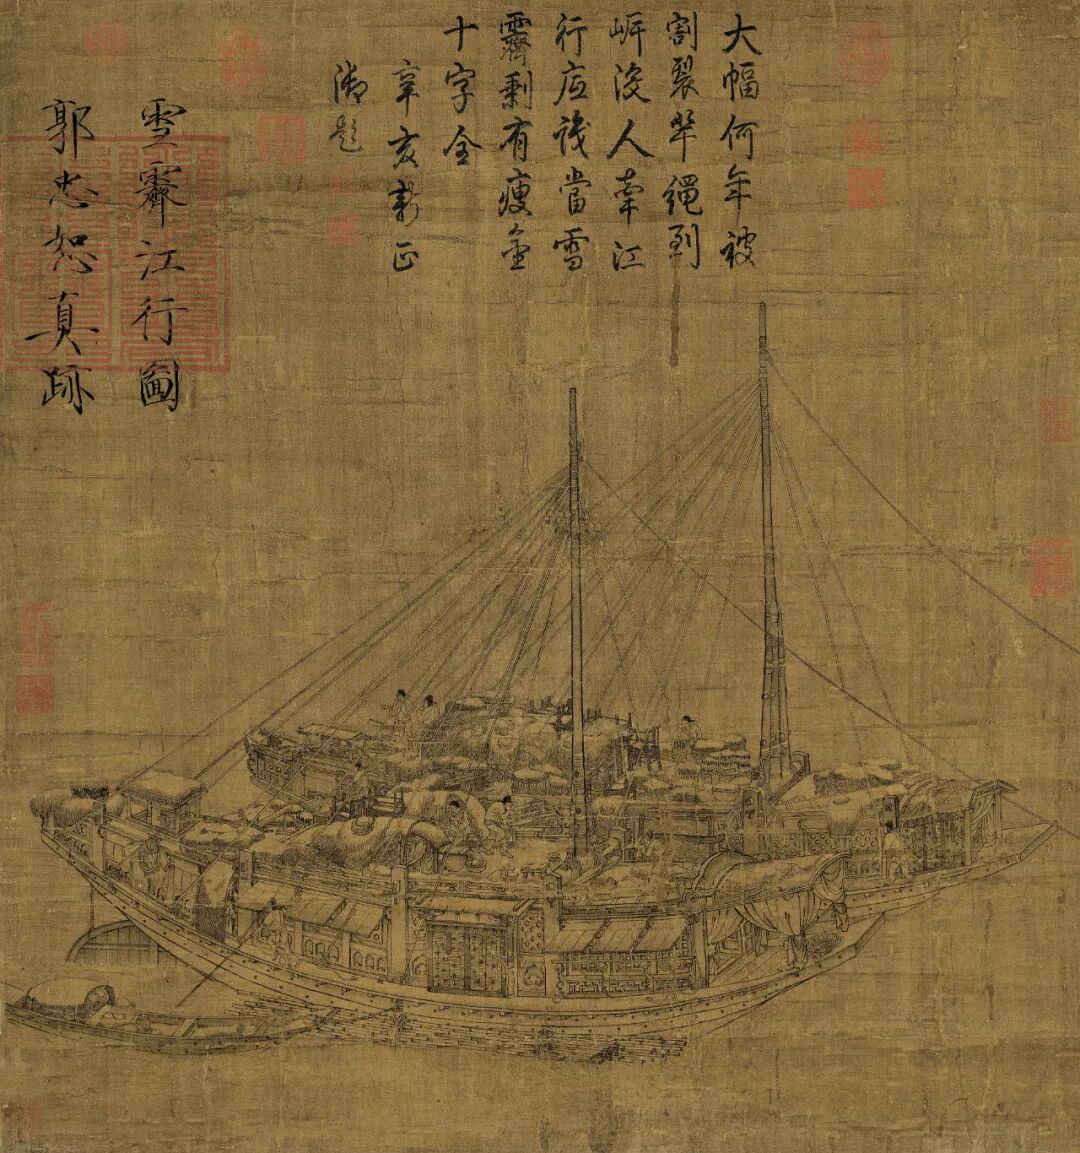 大幅何年被
割裂繩到
岸没人牽江
行識當雪
霽剩有瘦金
十字全
辛亥新正
御題
雪霽江行圖
郭忠恕真跡